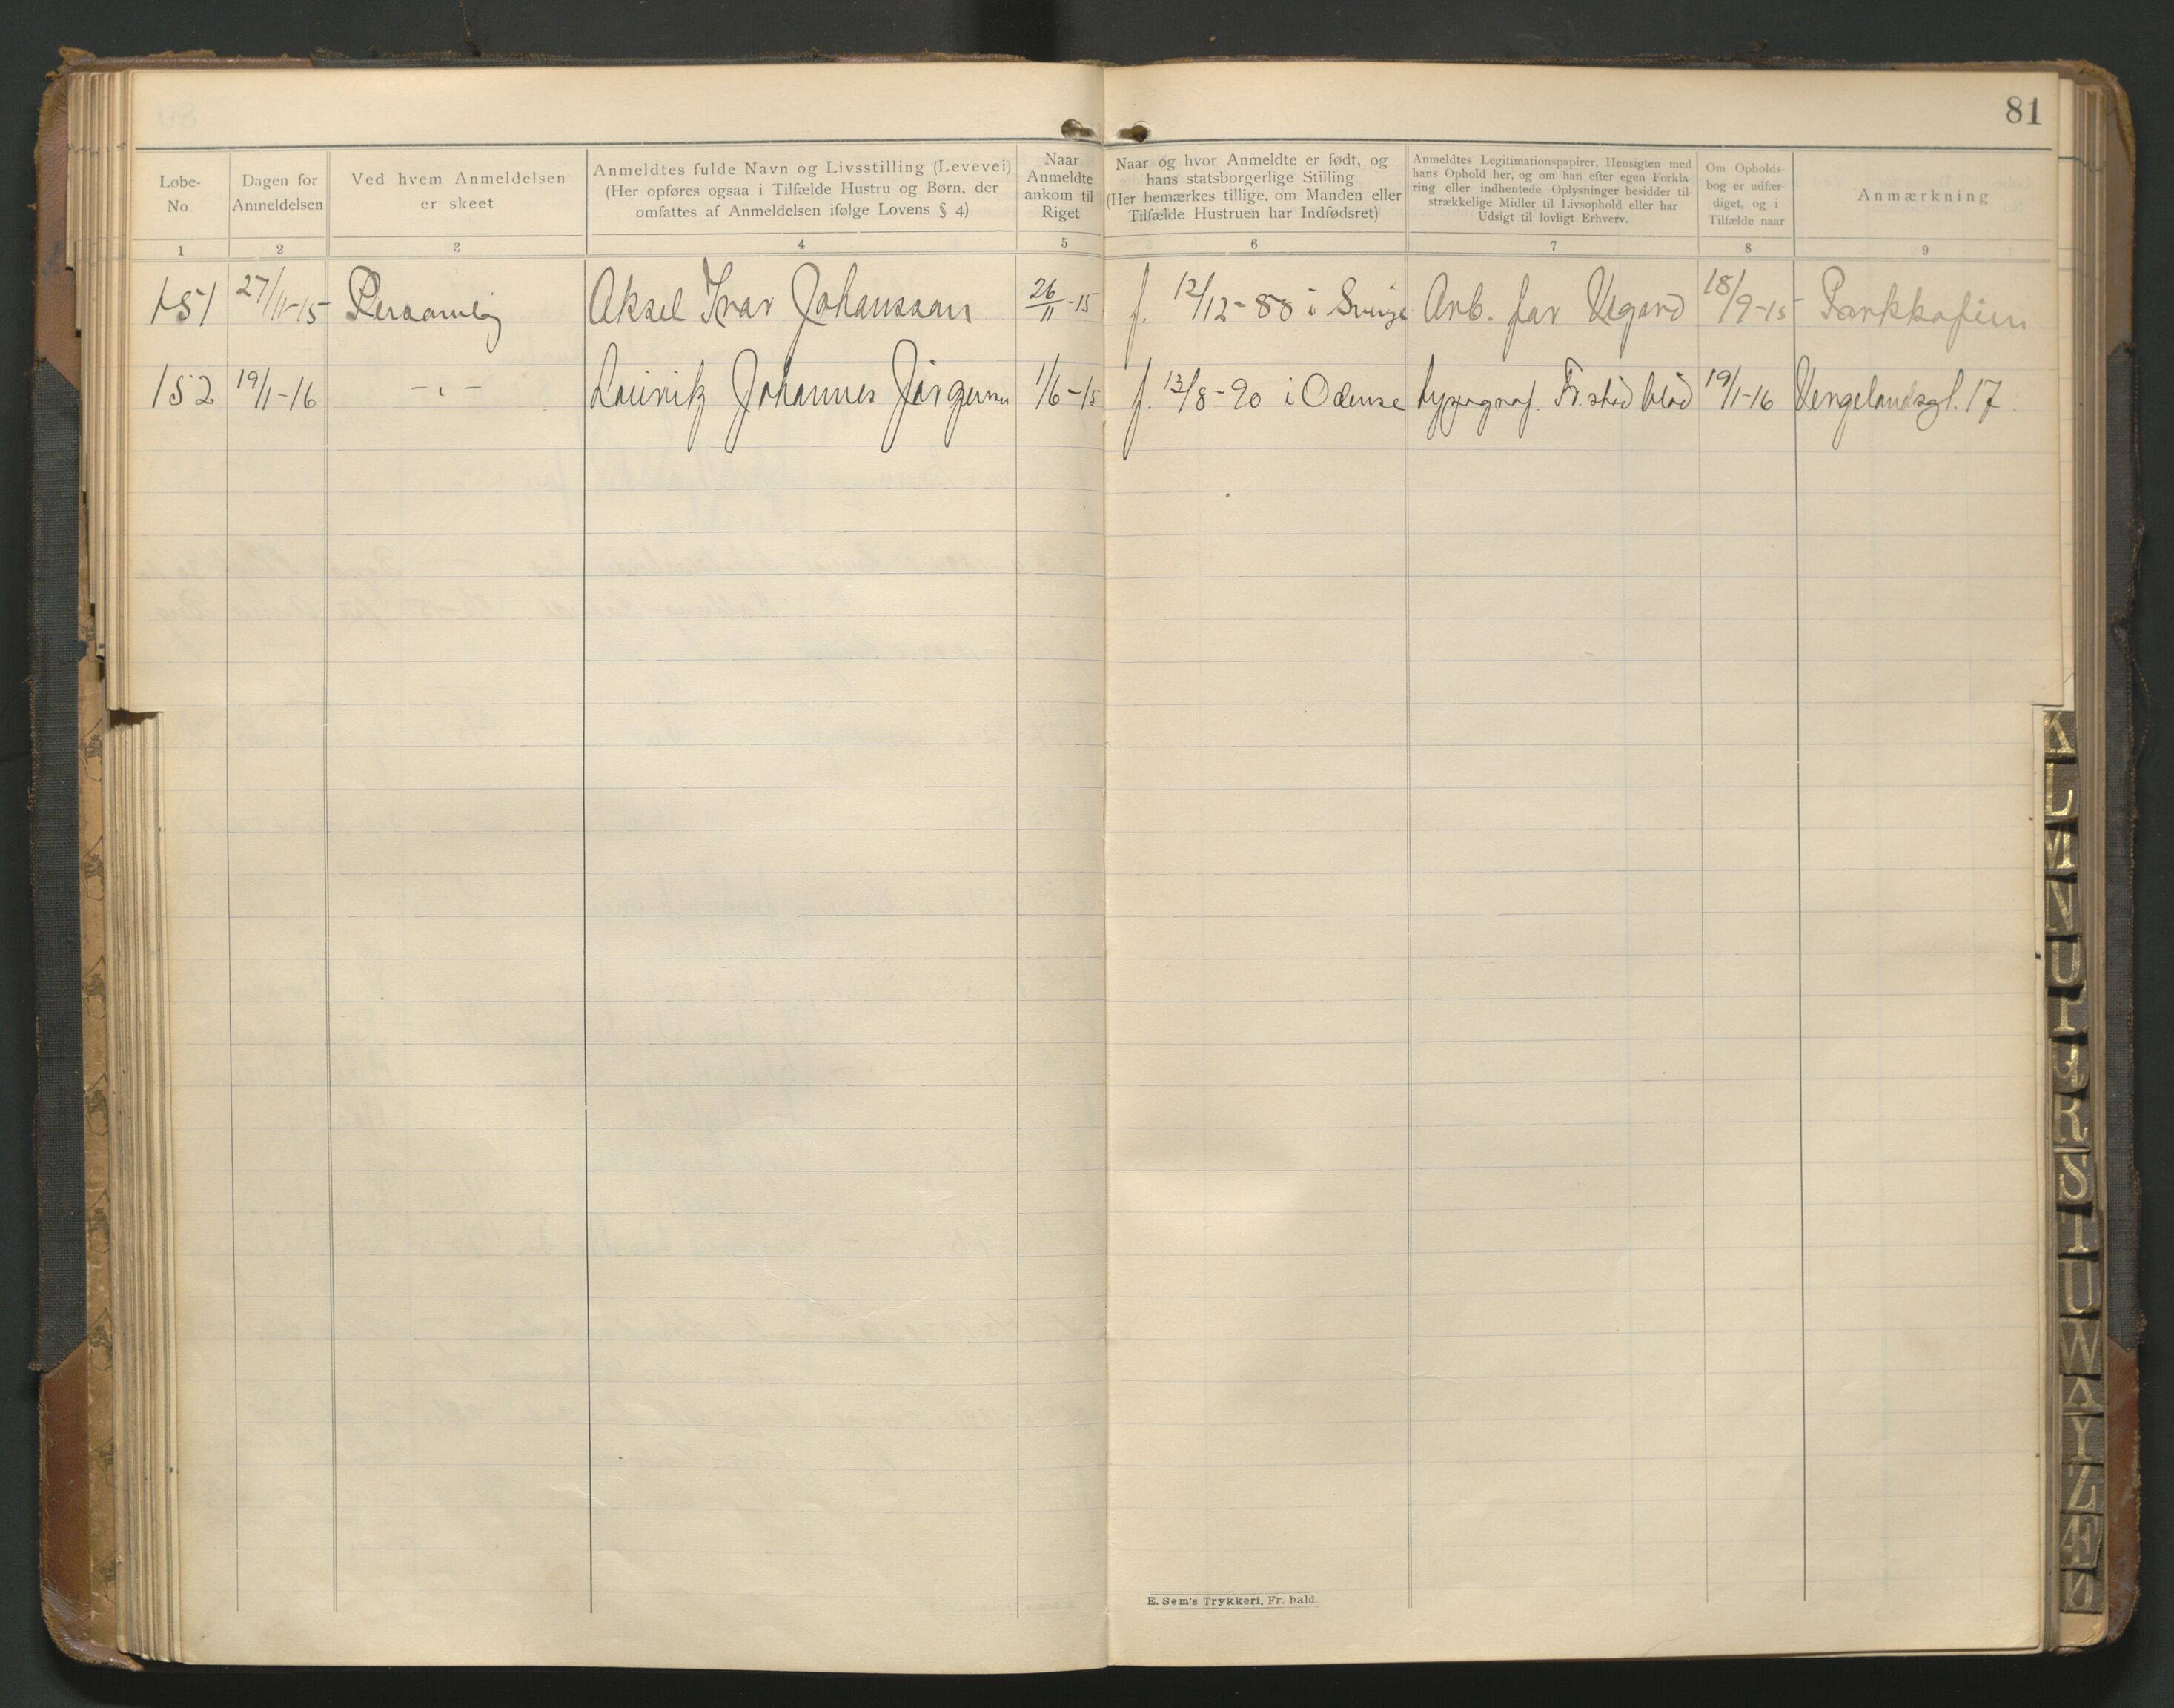 81
Løbe-
No.
Dagen for
Anmeldelsen
Ved hvem Anmeldelsen
er skeet
Anmeldtes fulde Navn og Livsstilling (Levevei)
(Her opføres ogsaa i Tilfælde Hustru og Børn, der
omfattes af Anmeldelsen ifølge Lovens § 4)
Naar
Anmeldte
ankom til
Riget
Naar og hvor Anmeldte er født, og
hans statsborgerlige Stilling
(Her bemærkes tillige, om Manden eller
Tilfælde Hustruen har Indfødsret)
Anmeldtes Legitimationspapirer, Hensigten med
hans Ophold her, og om han efter egen Forkla-
ring eller indhentede Oplysninger besidder til-
strækkelige Midler til Livsophold eller har
Udsigt til lovligt Erhverv.
Om Opholds-
bog er udfær-
diget, og i
Tilfælde naar
Anmærkning
1 2 3 4 5 6 7 8 9
151 27/11-15 Personlig Aksel Ivar Johansson 26/11-15 f. 12/12-88 i Sverige Arb. for 18/9-15
152 19/1-16 -"- Johannes Jörgensen 1/6-15 f. 13/8-90 i Odense typograf Fr.stad blad 19/1-16 Vergelandsgt. 17.
E. Sem's Trykkeri, Fr. hald.
K
L
M
N
O
P
Q
R
S
T
U
W
X
Y
Z
Æ
Ø